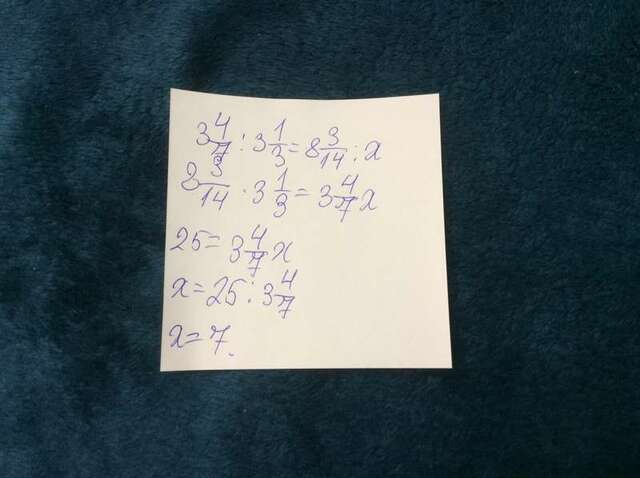 3 4/7 : 3 1/3 = 8 3/14 : x
8 3/14 · 3 1/3 = 3 4/7 x
25 = 3 4/7 x
x = 25 : 3 4/7
x = 7.